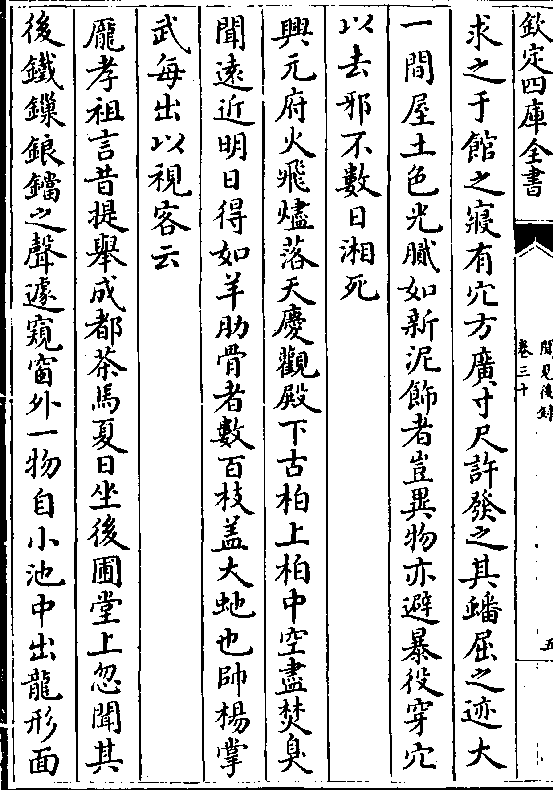 欽定四庫全書
聞見後錄
卷三十
五
求之于館之寢有穴方廣寸尺許發之其蟠屈之迹大
一間屋土色光膩如新泥飾者豈異物亦避暴役穿穴
以去邪不數日湘死
興元府火飛燼落天慶觀殿下古柏上柏中空盡焚臭
聞遠近明日得如羊肋骨者數百枝盖大虵也帥楊掌
武每出以視客云
龎孝祖言昔提舉成都茶馬夏日坐後圃堂上忽聞其
後鐵鏁鋃鐺之聲遽窺窗外一物自小池中出龍形面